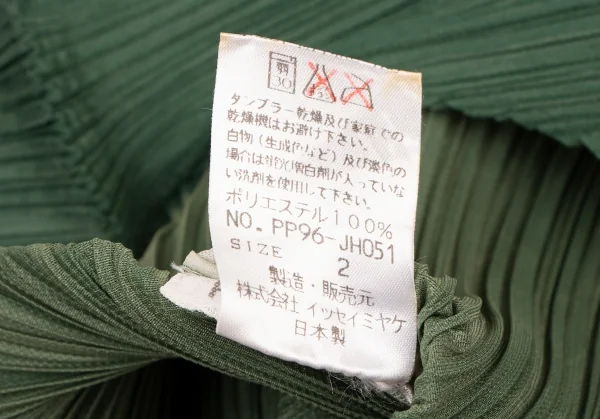 弱
30
エンソ
サラシ
タンブラー乾燥及び家庭での
乾燥機はお避け下さい。
白物(生成色など)及び淡色の
場合は蛍光増白剤が入っていな
い洗剤を使用して下さい。
ポリエステル100%
NO. PP96-JH051
SIZE 2
製造・販売元
株式会社 イッセイミヤケ
日本製